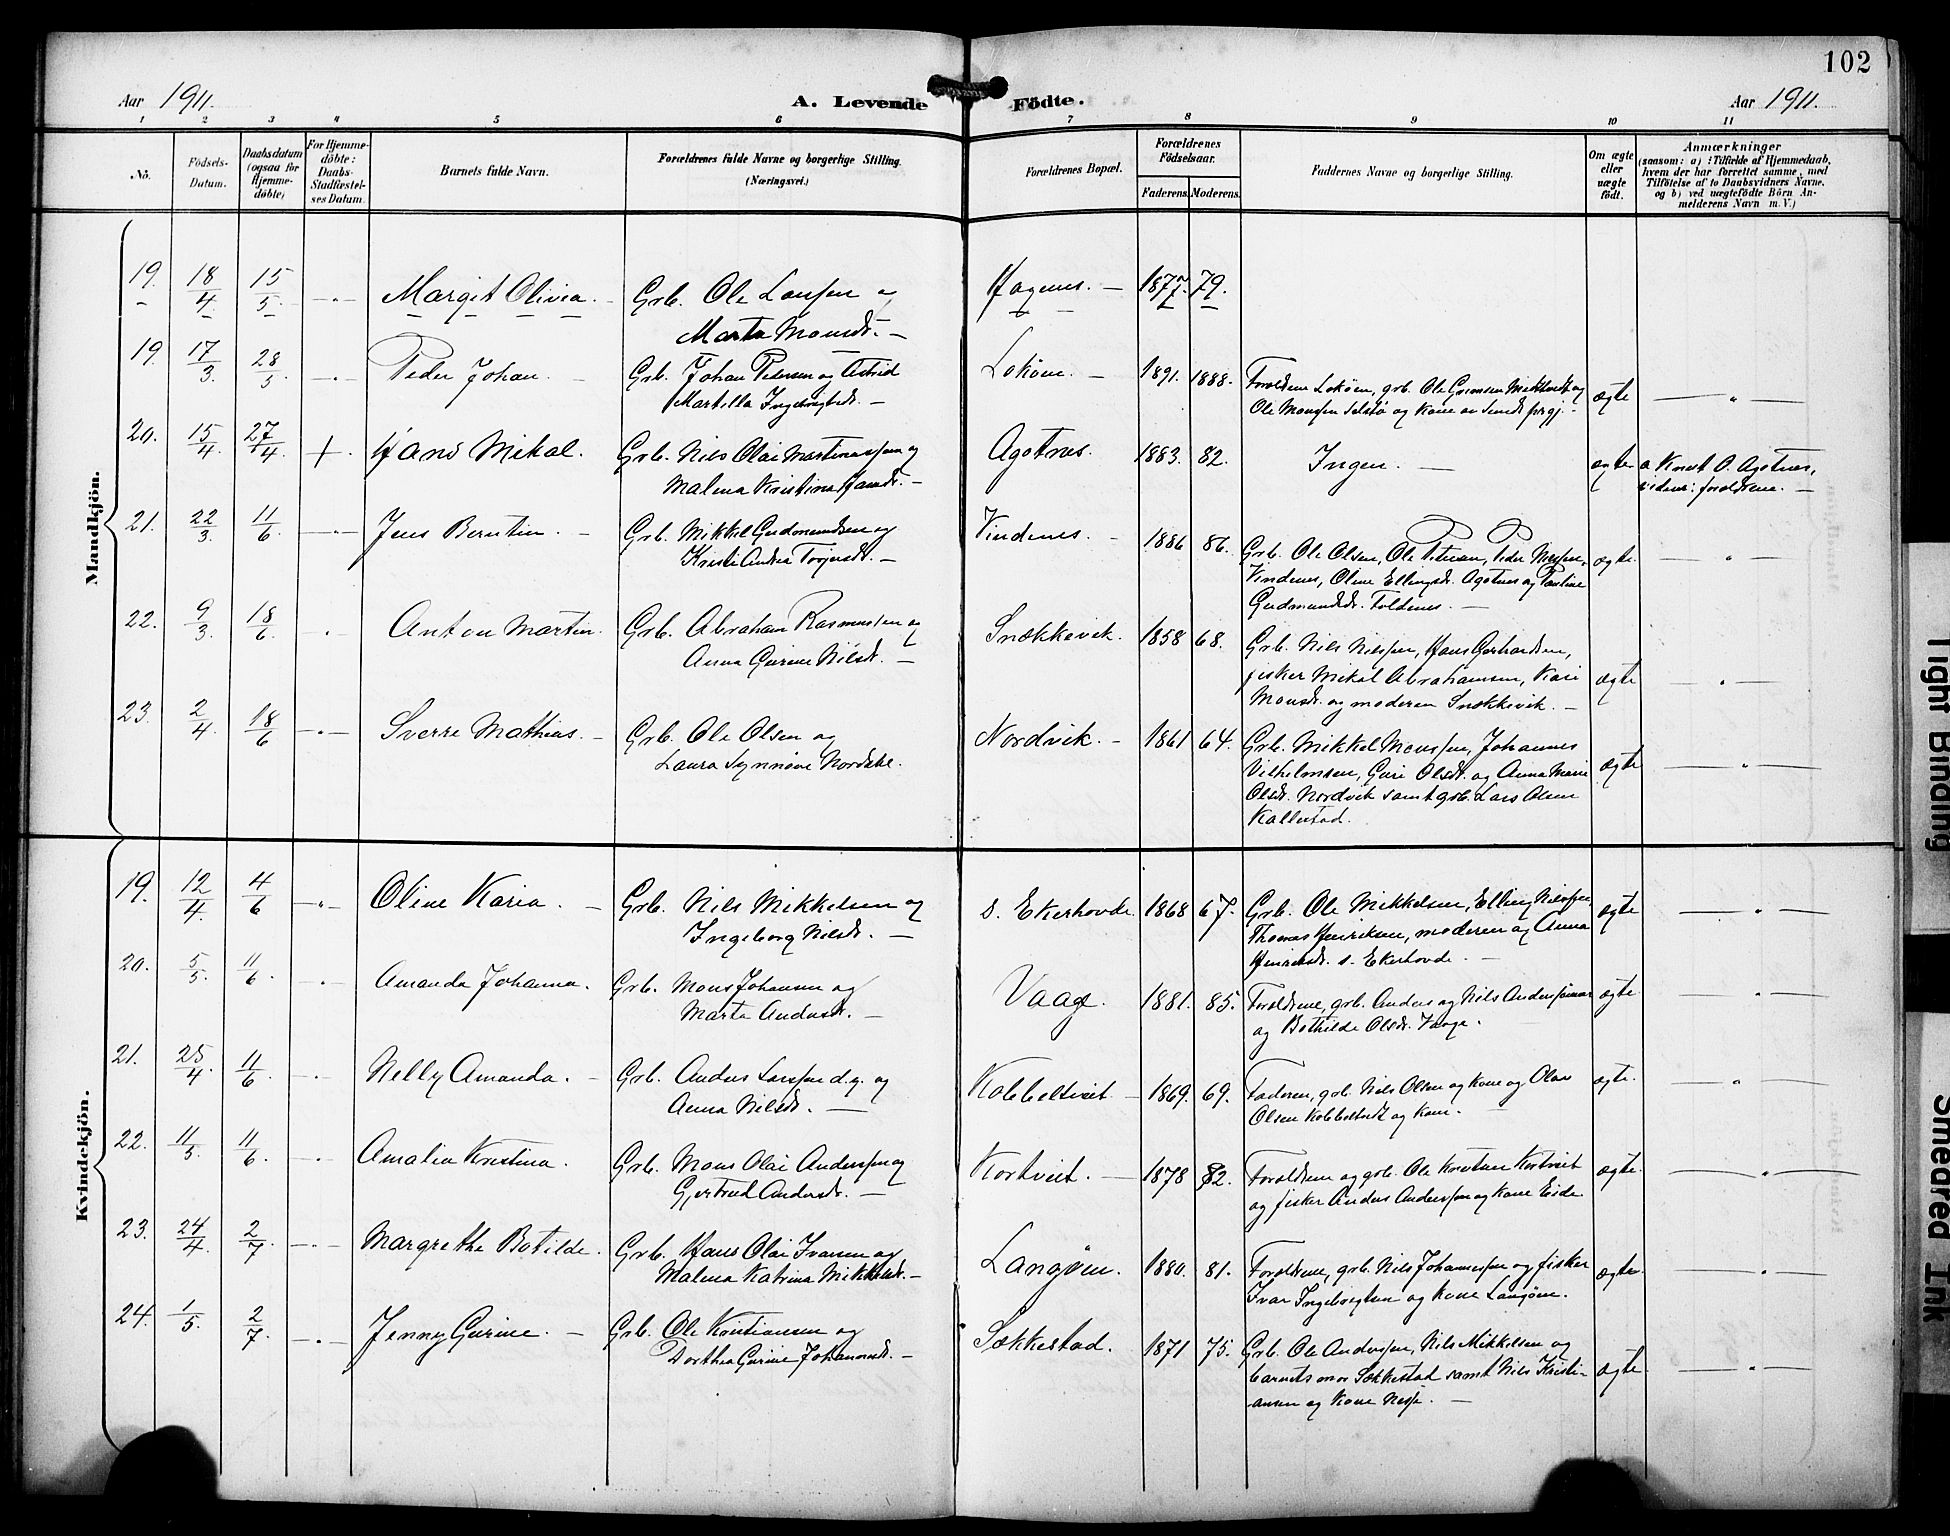 102
Aar 1911.
A. Levende Födte.
Aar 1911.
1 2 3 4 5 6 7 8 9 10 11
No.
Födsels-Datum.
Daabsdatum (ogsaa for Hjemme-döbte)
For Hjemme-döbte: Daabs-Stadfæstel-ses Datum.
Barnets fulde Navn.
Forældrenes fulde Navne og borgerlige Stilling. (Næringsvei.)
Forældrenes Bopæl.
Forældrenes Födselsaar.
Faderens. Moderens.
Faddernes Navne og borgerlige Stilling.
Om ægte eller uægte födt.
Anmærkninger
(saasom: a) i Tilfælde af Hjemmedaab,
hvem der har forrettet samme, med
Tilföielse af to Daabsvidners Navne,
og b) ved uægtefödte Börn An-
melderens Navn m. V.)
Mandkjön.
19. 18/4 15/5 -"- Margit Olivia. - Grb. Ole Larssen og Hagenes. - 1877. 79.
Marta Monsdr. -
19. 17/3 28/5 -"- Peder Johan. - Grb. Johan Pedersen og Astrid Lokøen. - 1891. 1888. Forældrene Lokøen, grb. Ole Grimsen og ægte -"-
Martilla Ingebrigtsdr. - Ole Monssen Selstø og Kone av Sunds prgj. -
20. 15/4 27/4 + Hans Mikal. Grb. Nils Olai Martinussen og Agotnes. 1883. 82. Ingen. - ægte a Knut O. Agotnes,
Malena Kristina Hansdr. - vidner: forældrene. -
21. 22/3 11/6 -"- Jens Berntin. - Grb. Mikkel Gudmundsen og Vindenes. - 1886 86. Grb. Ole Olsen, Ole Petersen, Peder Nilssen, ægte. -"-
Kristi Andrea Torgersdr. - Vindenes, Oline Ellingsdr. Agotnes og Pauline
Gudmundsdr. Foldenes. -
22. 9/3 18/6 " Anton Martin. Grb. Abraham Rasmussen og Snækkevik. 1858 68. Grb. Nils Nilssen, Hans Gerhardsen,
Anna Gurine Nilsdr. - fisker Mikal Abrahamsen, Kari ægte -"-
Monsdr. og moderen Snækkevik. -
23. 2/4 18/6 -"- Sverre Mathias. - Grb. Ole Olsen og Nordvik. - 1861 64. Grb. Mikkel Monssen, Johannes
Laura Synnøve Nordahl. Vilhelmsen, Guri Olsdr. og Anna Marie ægte -"-
Olsdr. Nordvik samt grb. Lars Olsen
Kallestad.
Kvindekjön.
19. 12/4 4/6 -"- Oline Karia. - Grb. Nils Mikkelsen og s. Ekerhovde. 1868 67. Grb. Ole Mikkelsen, Elling Nilssen, ægte -"-
Ingeborg Nilsdr. - Thomas Henriksen, moderen og Anna
Henriksdr. s. Ekerhovde. -
20. 5/5 11/6 -"- Amanda Johanna. Grb. Mons Johansen og Vaage. 1881. 85. Forældrene, grb. Anders og Nils Anderssønner ægte. -"-
Marta Andersdr. - og Bothilde Olsdr. Vaage.
21. 25/4 11/6 -"- Nelly Amanda. - Grb. Anders Larssen d.y. og Kobbeltveit - 1869. 69. Faderen, grb. Nils Olsen og Kone og Olav ægte. -"-
Anna Nilsdr. - Olsen Kobbeltveit og Kone. -
22. 11/5 11/6 -"- Amalia Kristina. Grb. Mons Olai Anderssen og Kortveit. - 1878 82. Forældrene og grb. Ole Knutsen Kortveit ægte. -"-
Gjertrud Andersdr. - og fisker Anders Anderssen og Kone Eide.
23. 24/4 2/7 -"- Margrethe Botilde. Grb. Hans Olai Ivarsen og Langøen. 1880. 81. Forældrene, grb. Nils Johannessen og fisker ægte. -"-
Malena Katrina Mikkelsdr. - Ivar Ingebrigtsen og Kone Langøen.
24. 1/5 2/7 -"- Jenny Gurine. - Grb. Ole Kristiansen og Sækkestad. 1871 75. Grb. Ole Anderssen, Nils Mikkelsen og
Dorthea Gurine Johannesdr. - barnets mor Sækkestad samt Nils Kristi- ægte -"-
ansen og Kone Nesse. -
Tight Binding
Smeared Ink